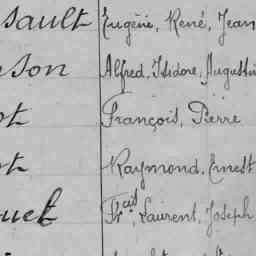 sault Eugène, René, Jean
son Alfred, Isidore, Augustin
ot François, Pierre
ot Raymond, Ernest
uet Frçois, Laurent, Joseph